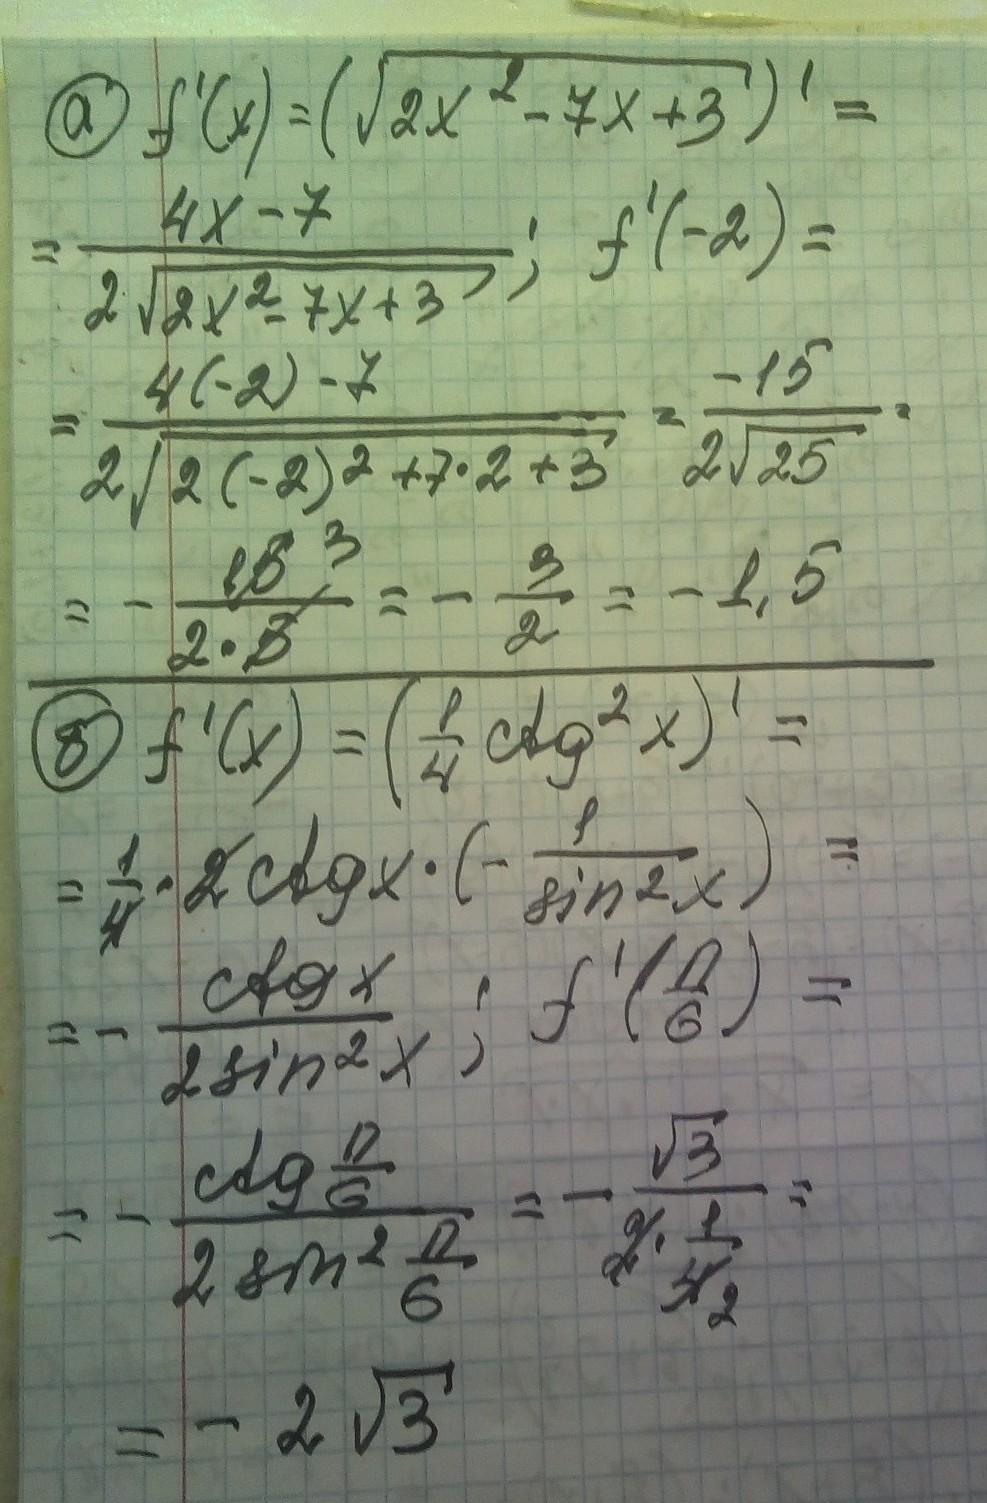 а) f'(x) = (√(2x² - 7x + 3))' =
= (4x - 7)/(2√(2x² - 7x + 3)); f'(-2) =
= (4(-2) - 7)/(2√(2(-2)² + 7·2 + 3)) = (-15)/(2√25) =
= - (15 3)/(2·5) = - 3/2 = - 1,5
б) f'(x) = (1/4 ctg² x)' =
= 1/4 · 2 ctg x · (- 1/(sin² x)) =
= - (ctg x)/(2 sin² x); f'(π/6) =
= - (ctg π/6)/(2 sin² π/6) = - √3/(2 · 1/4 2) =
= - 2√3